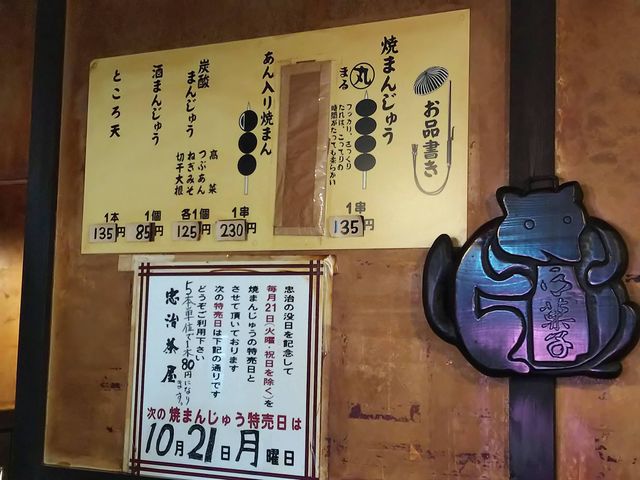 お品書き
焼まんじゅう
丸
まる
フックリ、さっくり
たれは、こってりの
時間がたっても柔らかい
1串
135円
あん入り焼まん
1串
230円
炭酸
まんじゅう
高菜
つぶあん
ねぎみそ
切干大根
各1個
125円
酒まんじゅう
1個
85円
ところ天
1本
135円
忠治の没日を記念して
毎月21日(火曜・祝日を除く)を
焼まんじゅうの特売日と
させて頂いております
次の特売日は下記の通りです
どうぞご利用下さい
5本単位で1本80円になり
ます。
忠治茶屋
次の焼まんじゅう特売日は
10月21日月曜日
御菓子